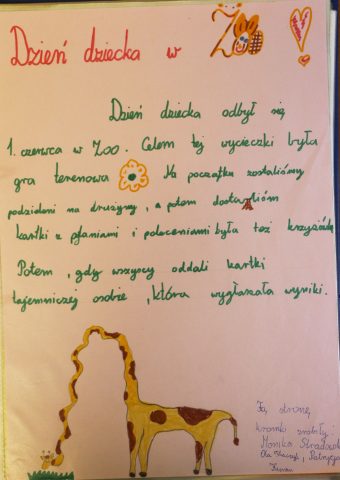 Dzień dziecka w Zoo!
Dzień dziecka odbył się
1. czerwca w Zoo. Celem tej wycieczki była
gra terenowa Na początku zostaliśmy
podzieleni na drużyny, a potem
kartki z pytaniami i poleceniami była też krzyżówka
Potem, gdy wszyscy oddali kartki
tajemniczej osobie, która wygłaszała wyniki.
Tą stronę
kroniki zrobiły:
Monika
Ola Patrycja